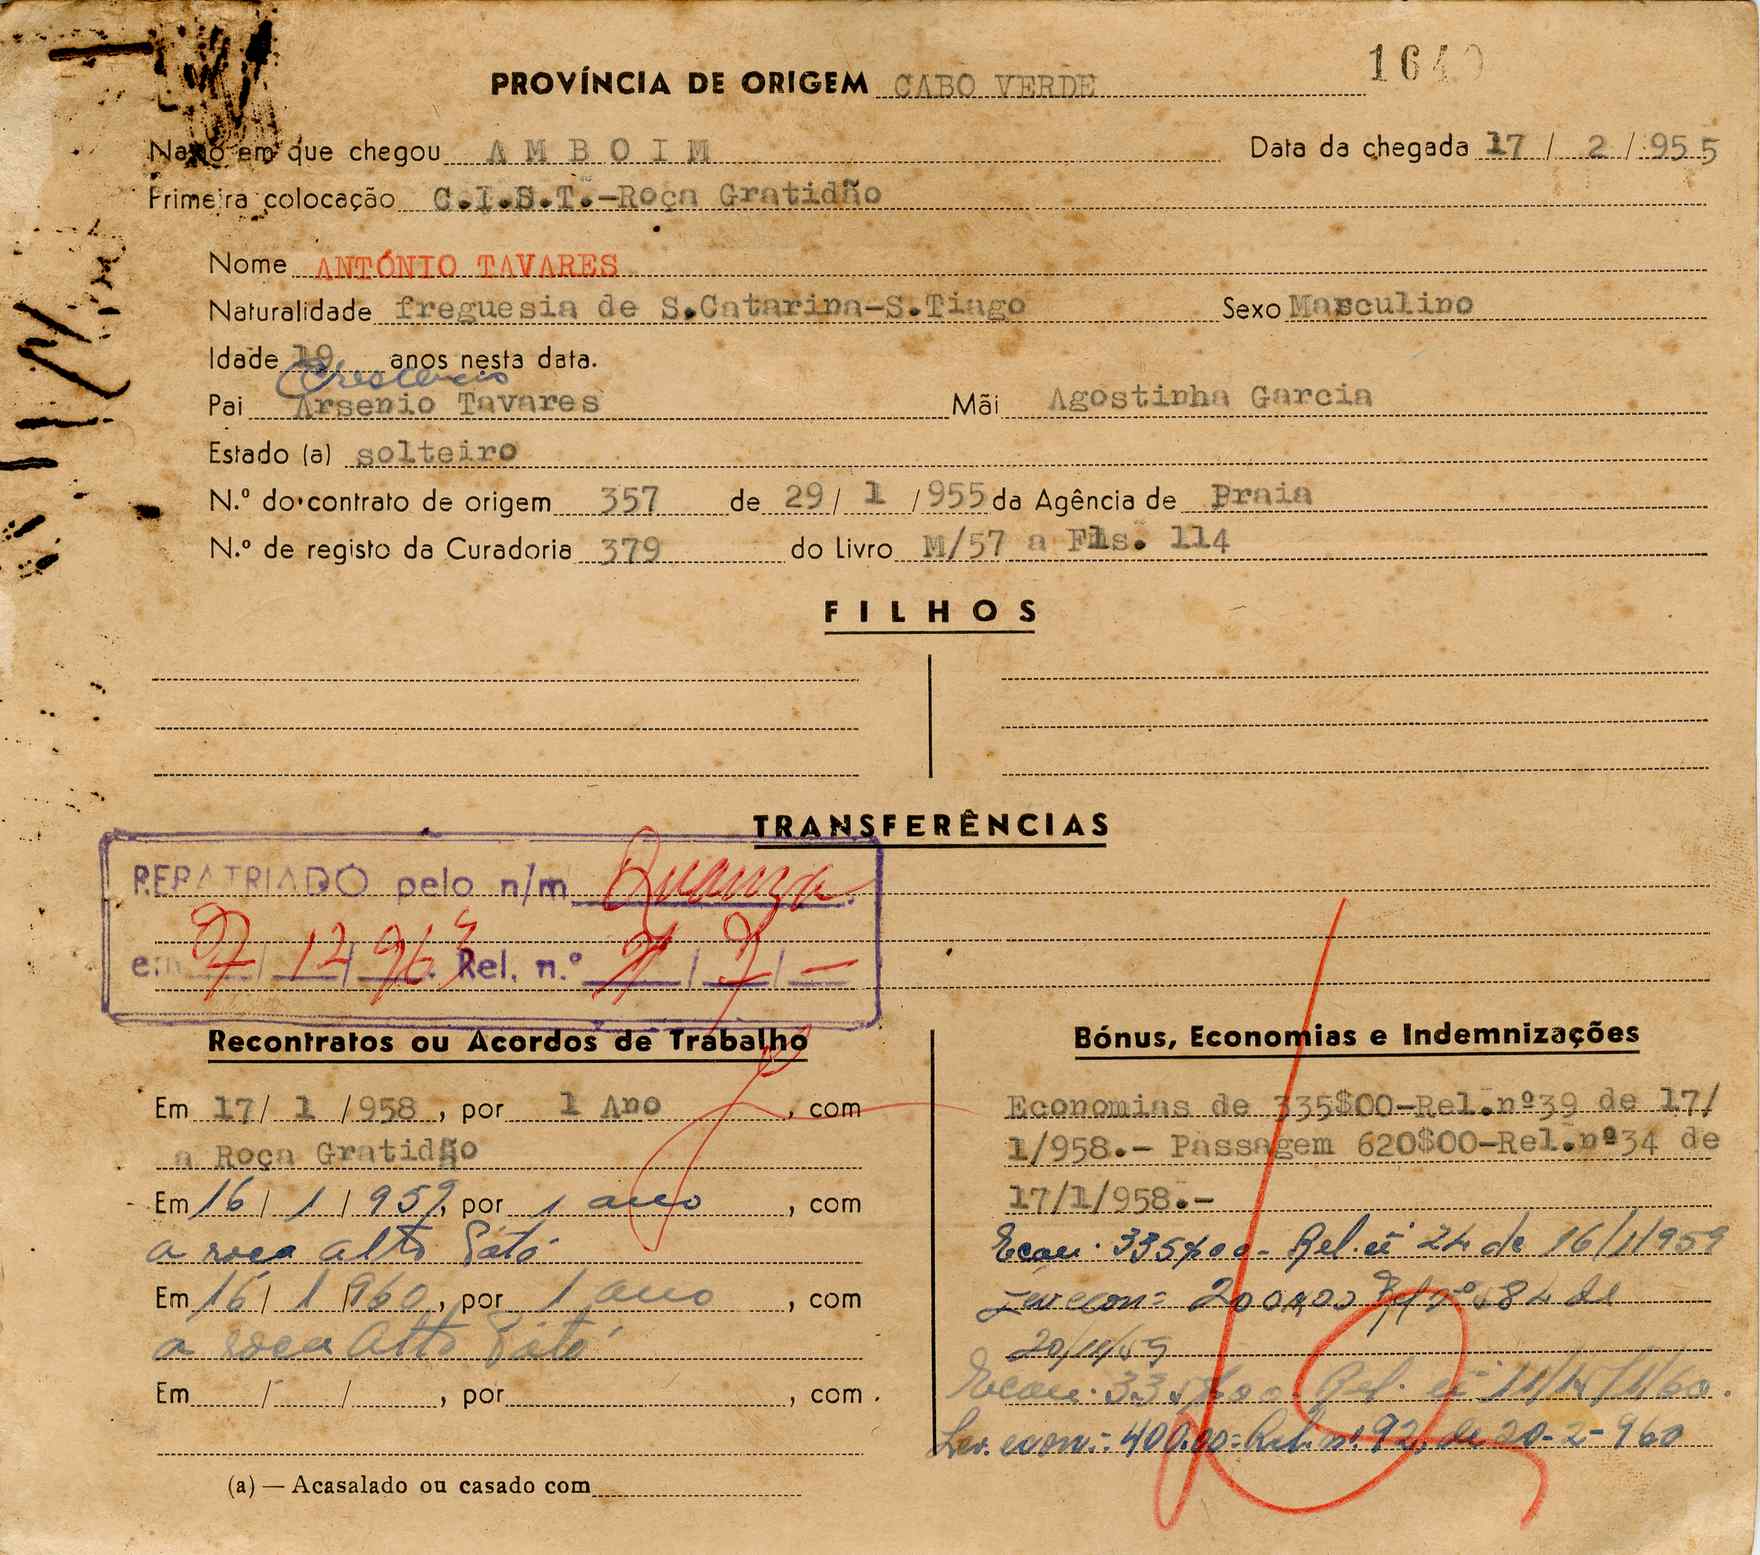 1640
PROVÍNCIA DE ORIGEM CABO VERDE
Navio em que chegou AMBOIM Data da chegada 17 / 2 / 955
Primeira colocação C.I.S.T.-Roça Gratidão
Nome ANTÓNIO TAVARES
Naturalidade freguesia de S.Catarina-S.Tiago Sexo Masculino
Idade 19 anos nesta data.
Crescencio
Pai Arsenio Tavares Mãi Agostinha Garcia
Estado (a) solteiro
N.º do contrato de origem 357 de 29 / 1 / 955 da Agência de Praia
N.º de registo da Curadoria 379 do Livro M/57 a Fls. 114
FILHOS
TRANSFERÊNCIAS
REPATRIADO pelo n/m Quanza
em 7 / 12 / 963. Rel. n.º / 7 / —
Recontratos ou Acordos de Trabalho
Em 17 / 1 / 958, por 1 Ano, com
a Roça Gratidão
Em 16 / 1 / 959, por 1 ano, com
a roça Alto
Em 16 / 1 / 960, por 1 ano, com
a roça Alto
Em / / , por , com
(a) — Acasalado ou casado com
Bónus, Economias e Indemnizações
Economias de 335$00-Rel.nº39 de 17/
1/958.- Passagem 620$00-Rel.nº34 de
17/1/958.-
Econ. 335$00- Rel. nº 24 de 16/1/959
Lev econ= 200$00 de
20/11/59
Econ. 335$00 Rel. nº
Lev. econ.= 400.00= Rel. nº. 92, de 20-2-960